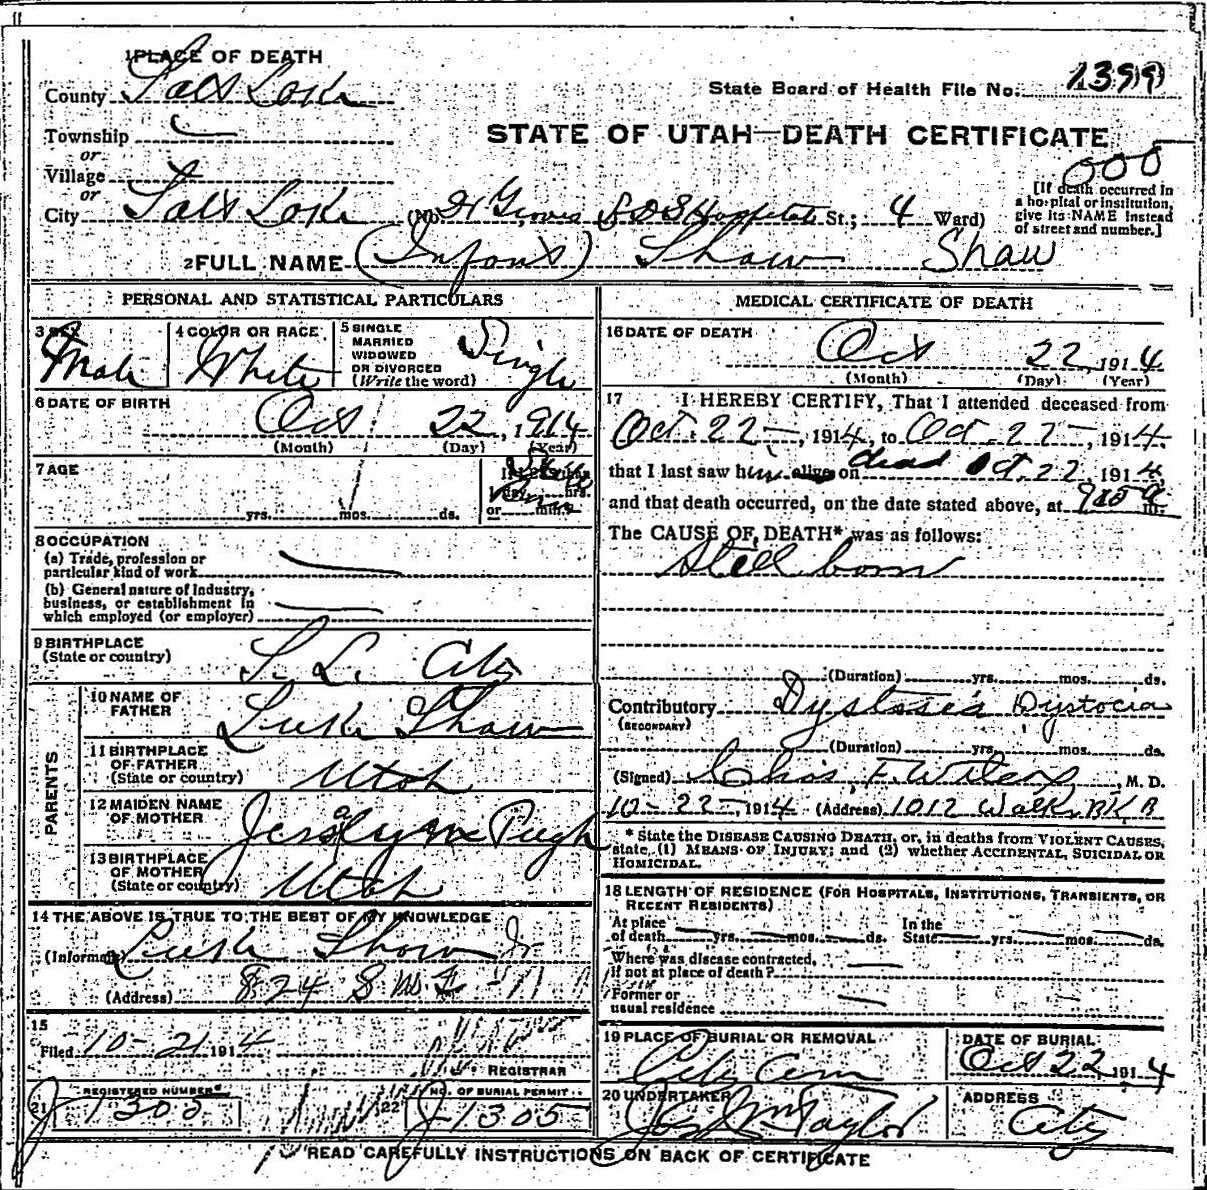 1 PLACE OF DEATH
County Salt Lake
State Board of Health File No. 1399
Township
or
Village
STATE OF UTAH—DEATH CERTIFICATE
000
or
City Salt Lake (No. Groves L D S Hospital St.; 4 Ward)
[If death occurred in
a hospital or institution,
give its NAME instead
of street and number.]
2 FULL NAME (Infant) Shaw Shaw
PERSONAL AND STATISTICAL PARTICULARS
3 SEX Male
4 COLOR OR RACE White
5 SINGLE
MARRIED
WIDOWED
OR DIVORCED
(Write the word) Single
6 DATE OF BIRTH
Oct 22, 1914
(Month) (Day) (Year)
7 AGE
yrs. mos. ds.
1 day, hrs.
or min.?
8 OCCUPATION
(a) Trade, profession or
particular kind of work
(b) General nature of industry,
business, or establishment in
which employed (or employer)
9 BIRTHPLACE
(State or country) S. L. City
PARENTS
10 NAME OF
FATHER Luke Shaw
11 BIRTHPLACE
OF FATHER
(State or country) Utah
12 MAIDEN NAME
OF MOTHER Pugh
13 BIRTHPLACE
OF MOTHER
(State or country) Utah
14 THE ABOVE IS TRUE TO THE BEST OF MY KNOWLEDGE
(Informant) Luke Shaw Jr
(Address) 824 S
15
Filed 10-21 1914
REGISTRAR
21 REGISTERED NUMBER J 1305
22 NO. OF BURIAL PERMIT J-1305
MEDICAL CERTIFICATE OF DEATH
16 DATE OF DEATH
Oct 22, 1914
(Month) (Day) (Year)
17 I HEREBY CERTIFY, That I attended deceased from
Oct. 22, 1914, to Oct. 22, 1914
that I last saw him alive on dead Oct. 22, 1914,
and that death occurred, on the date stated above, at 915 a m.
The CAUSE OF DEATH* was as follows:
Still born
(Duration) yrs. mos. ds.
Contributory Dystocia Dystocia
(SECONDARY)
(Duration) yrs. mos. ds.
(Signed) Chas. F. Wilcox, M. D.
10-22-, 1914 (Address) 1012 Walk. BK. B
* State the DISEASE CAUSING DEATH, or, in deaths from VIOLENT CAUSES,
state (1) MEANS OF INJURY; and (2) whether ACCIDENTAL, SUICIDAL OR
HOMICIDAL.
18 LENGTH OF RESIDENCE (FOR HOSPITALS, INSTITUTIONS, TRANSIENTS, OR
RECENT RESIDENTS)
At place
of death yrs. mos. ds.
In the
State yrs. mos. ds.
Where was disease contracted,
if not at place of death?
Former or
usual residence
19 PLACE OF BURIAL OR REMOVAL
City Cem
DATE OF BURIAL
Oct 22, 1914
20 UNDERTAKER
Jos Wm Taylor
ADDRESS
City
READ CAREFULLY INSTRUCTIONS ON BACK OF CERTIFICATE